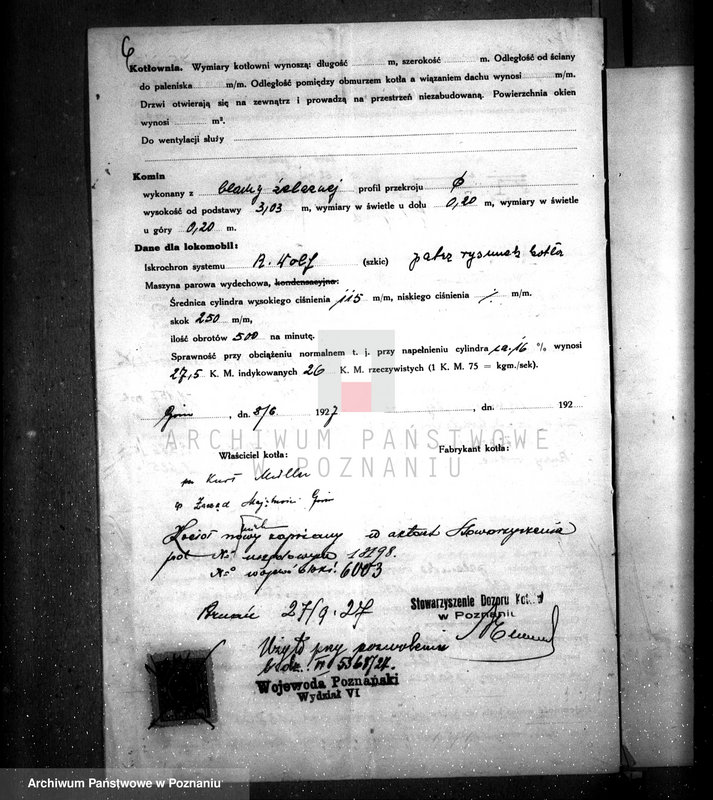 6
Kotłownia. Wymiary kotłowni wynoszą: długość m, szerokość m. Odległość od ściany
do paleniska m/m. Odległość pomiędzy obmurzem kotła a wiązaniem dachu wynosi m/m.
Drzwi otwierają się na zewnątrz i prowadzą na przestrzeń niezabudowaną. Powierzchnia okien
wynosi m².
Do wentylacji służy
Komin
wykonany z blachy żelaznej profil przekroju
wysokość od podstawy 3,03 m, wymiary w świetle u dołu 0,20 m, wymiary w świetle
u góry 0,20 m.
Dane dla lokomobil:
Iskrochron systemu R. Wolf (szkic) patrz rysunek kotła
Maszyna parowa wydechowa, kondensacyjna.
Średnica cylindra wysokiego ciśnienia 115 m/m, niskiego ciśnienia m/m.
skok 250 m/m,
ilość obrotów 500 na minutę.
Sprawność przy obciążeniu normalnem t. j. przy napełnieniu cylindra % wynosi
27,5 K. M. indykowanych 26 K. M. rzeczywistych (1 K. M. 75 = kgm./sek).
, dn. 8/6 1927 , dn. 192
ARCHIWUM PAŃSTWOWE
W POZNANIU
Właściciel kotła: Fabrykant kotła:
Kurt Müller
Zarząd
Kocioł nowy zapisany w aktach Stowarzyszenia
pod No 18198.
No 6003
27/9.27
Stowarzyszenie Dozoru Kotłów
w Poznaniu
Użyto przy pozwoleniu
L. dz. 5368/27.
Wojewoda Poznański
Wydział VI
Archiwum Państwowe w Poznaniu